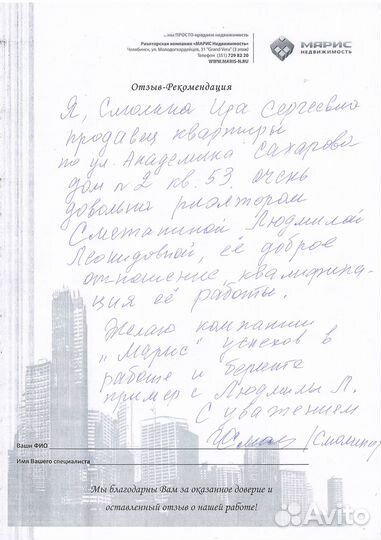 ...мы ПРОСТО продаем недвижимость
Риэлторская компания «МАРИС Недвижимость»
Челябинск, ул. Молодогвардейцев, 31 "Grand Vera" (3 этаж)
Телефон (351) 729 82 20
WWW.MARIS-N.RU
МАРИС
НЕДВИЖИМОСТЬ
Отзыв-Рекомендация
Я, Смолина Ида Сергеевна
продавец квартиры
по ул. Академика Сахарова
дом № 2 кв. 53. очень
довольна риэлтором
Сметаниной Людмилой
Леонидовной, её доброе
отношение, квалифика-
ция её работы.
Желаю компании
"Марис" успехов в
работе и берите
пример с Людмилы Л.
С уважением
Ваши ФИО
Имя Вашего специалиста
Мы благодарны Вам за оказанное доверие и
оставленный отзыв о нашей работе!
Avito